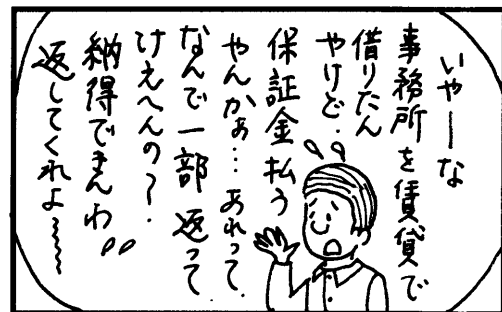 いやーな
事務所を賃貸で
借りたん
やけど.
保証金払う
やんかぁ… あれって.
なんで一部 返って
けえへんの?.
納得できんわ〃
返してくれよ〜〜